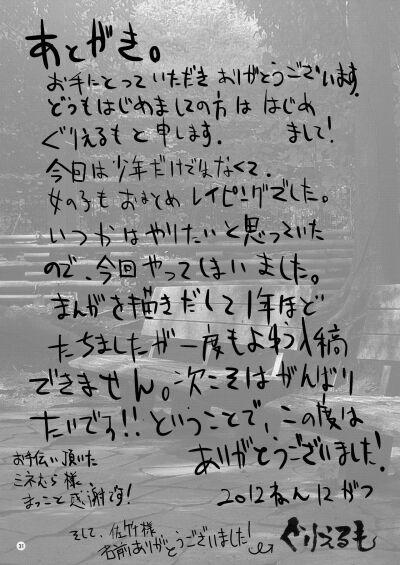 あとがき。
お手にとっていただきありがとうございます。
どうもはじめましての方は はじめ
ぐりえるもと申します。 まして!
今回は少年だけでなくて、
女の子もおまとめレイピングでした。
いつかはやりたいと思っていた
ので、今回やってしまいました。
まんがを描きだして1年ほど
たちましたが一度もよゆう入稿
できません。次こそはがんばり
たいです!!ということで、この度は
ありがとうございました!
お手伝い頂いた
ミネむら様、
まっこと感謝です!
2012ねん12がつ
そして、佐竹様
名前ありがとうございました!
ぐりえるも
31